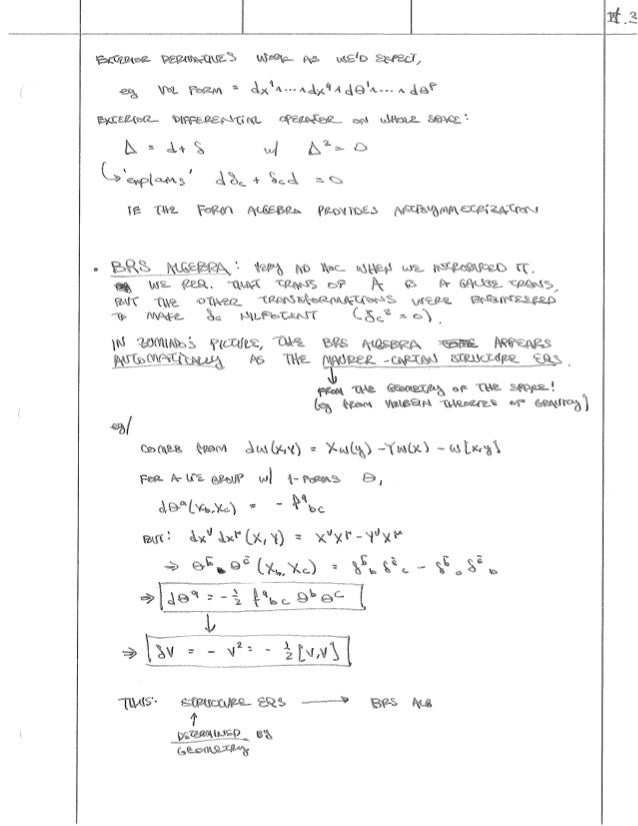 11.3
EXTERIOR DERIVATIVES WORK AS WE'D EXPECT,
eg VOL FORM = dx¹∧...∧dx⁴∧dθ¹∧...∧dθᵖ
EXTERIOR DIFFERENTIAL OPERATOR ON WHOLE SPACE:
Δ = d + δ w/ Δ² = 0
↳ 'explains' dδc + δcd = 0
IE THE FORM ALGEBRA PROVIDES ANTISYMMETRIZATION
• BRS ALGEBRA: VERY AD HOC WHEN WE INTRODUCED IT.
WE REQ. THAT TRANS OF A IS A GAUGE TRANS,
BUT THE OTHER TRANSFORMATIONS WERE ENGINEERED
TO MAKE δc NILPOTENT (δc² = 0).
IN ZUMINO'S PICTURE, THE BRS ALGEBRA APPEARS
AUTOMATICALLY AS THE MAURER-CARTAN STRUCTURE EQS.
↓
FROM THE GEOMETRY OF THE SPACE!
(eg FROM VIELBEIN THEORIES OF GRAVITY)
eg/
COMES FROM dω(x,y) = Xω(y) - Yω(x) - ω[x,y]
FOR A LIE GROUP w/ 1-FORMS θ,
dθᵃ(Xb, Xc) = - fᵃbc
BUT: dxᵛdxᵘ(X,Y) = XᵛYᵘ - YᵛXᵘ
⇒ θᵇ̄ θᶜ̄ (Xb, Xc) = δᵇ̄b δᶜ̄c - δᵇ̄c δᶜ̄b
⇒ dθᵃ = -½ fᵃbc θᵇθᶜ
↓
⇒ δV = - V² = - ½[V,V]
THUS: STRUCTURE EQS → BRS ALG
↑
DETERMINED BY
GEOMETRY